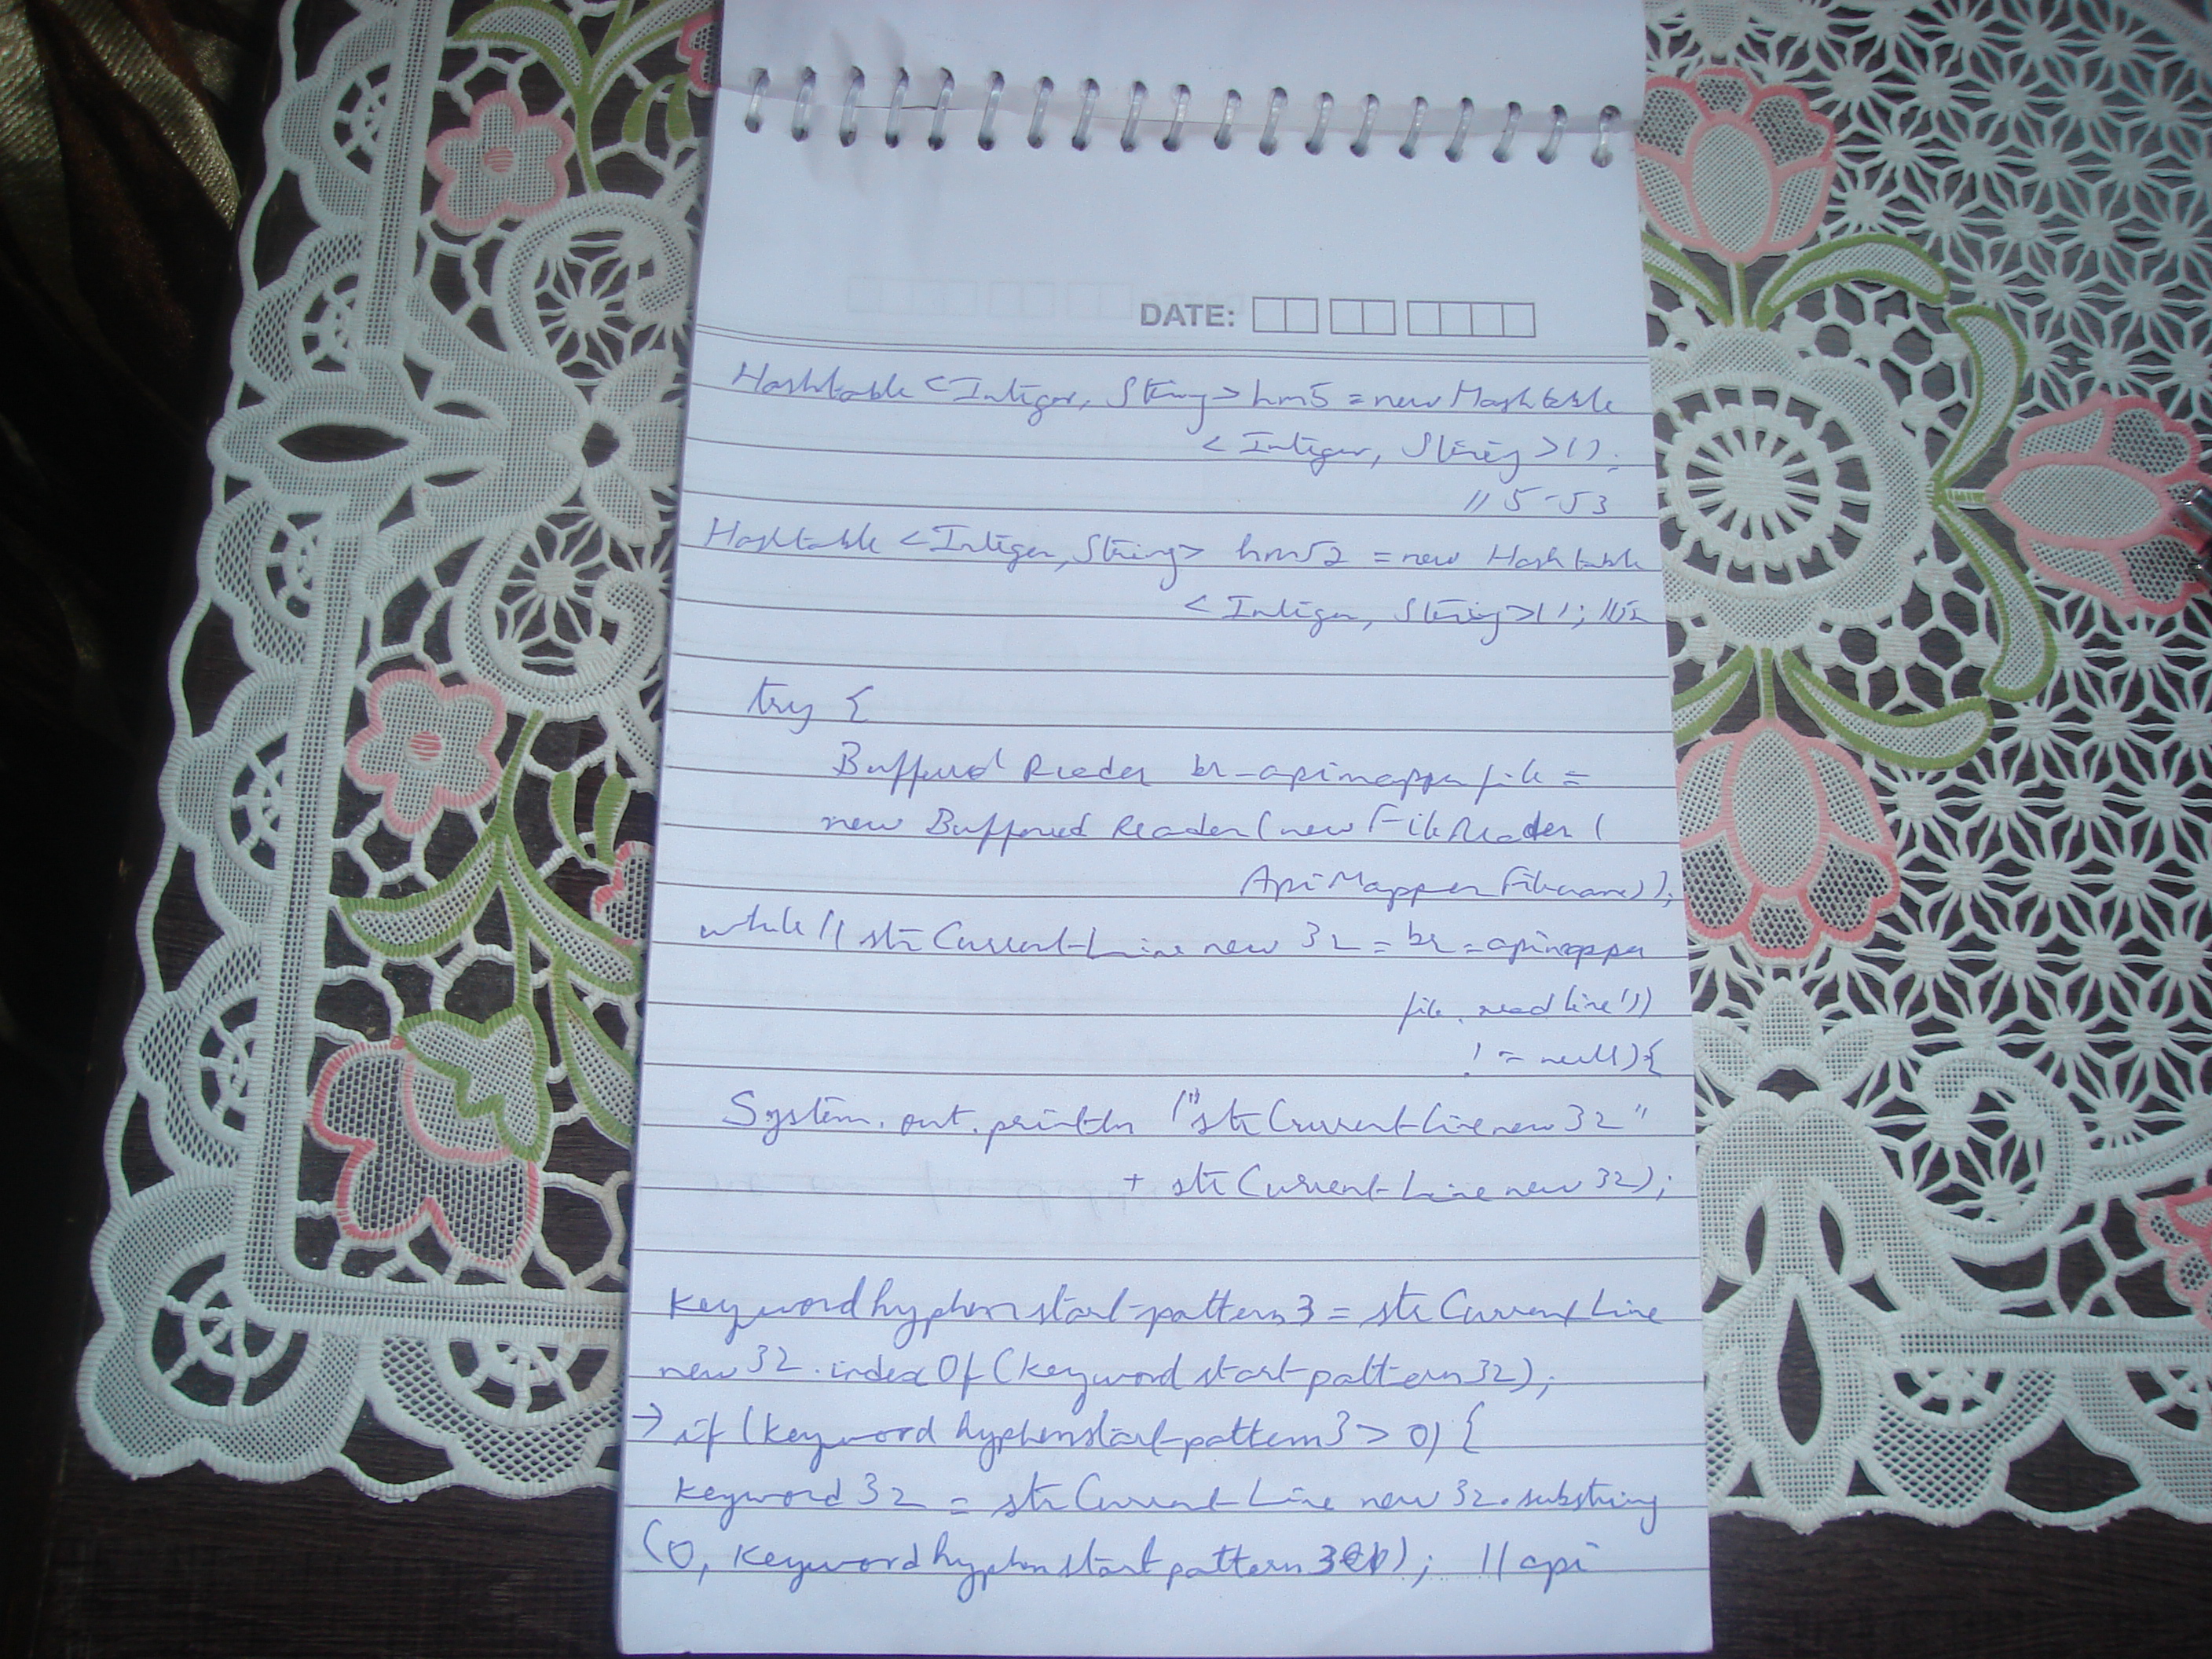 DATE:
Hashtable <Integer, String> hm5 = new Hashtable
<Integer, String>();
// 5-53
Hashtable <Integer, String> hm52 = new Hashtable
<Integer, String>(); //52
try {
Buffered Reader br_apimapperfile =
new Buffered Reader(new FileReader(
ApiMapperFilename));
while (( strCurrentLine new 32 = br=apimapper
file.readLine())
!= null) {
System.out.println ("strCurrentLinenew32"
+ strCurrentLinenew32);
Keywordhyphenstartpattern3 = strCurrentLine
new32.indexOf(Keywordstartpattern32);
→ if (Keywordhyphenstartpattern3 > 0) {
Keyword32 = strCurrentLine new32.substring
(0, Keywordhyphenstartpattern3); // api